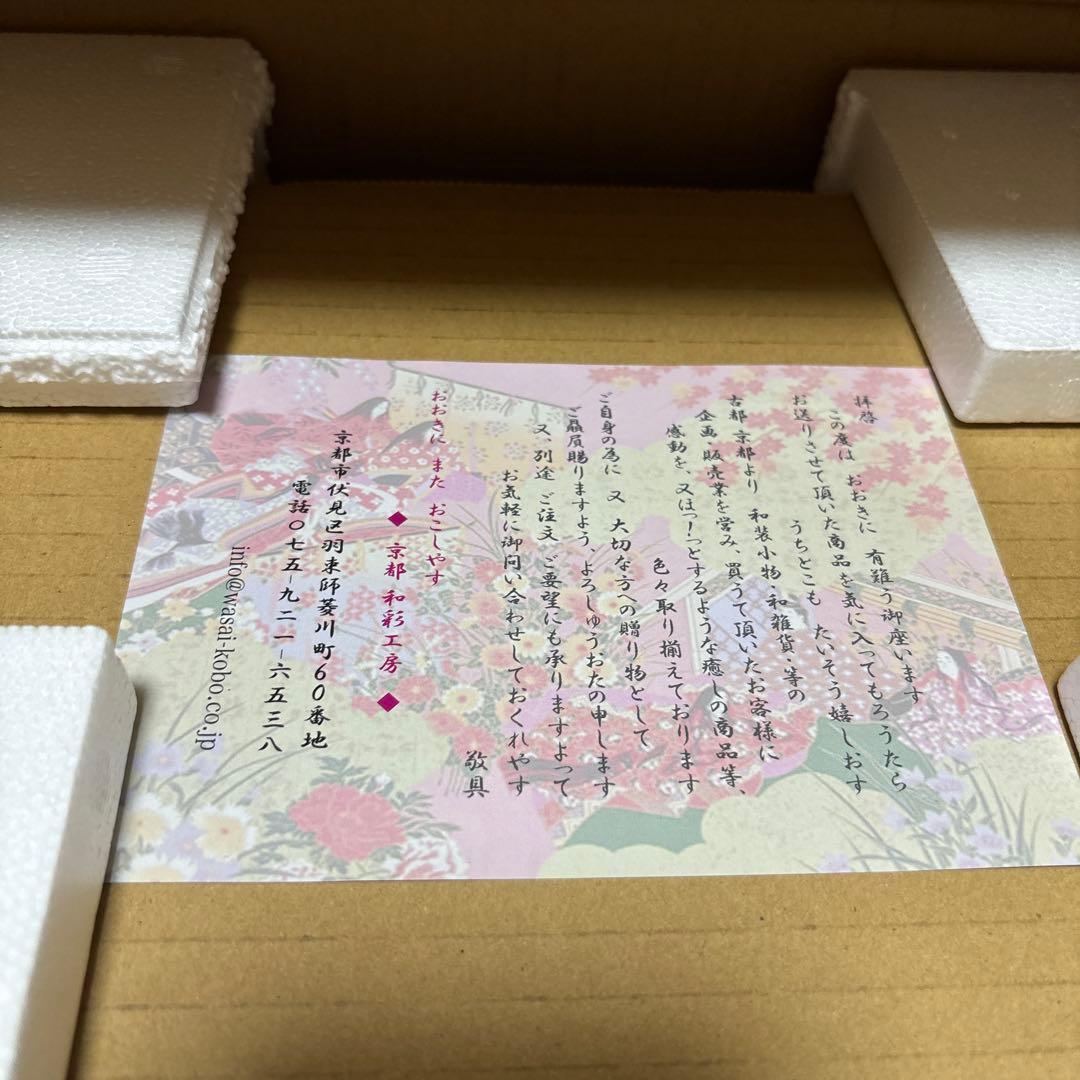 拝啓
この度は おおきに 有難う御座います
お送りさせて頂いた商品を気に入ってもろうたら
うちとこも たいそう嬉しおす
古都 京都より 和装小物・和雑貨・等の
企画 販売業を営み、買うて頂いたお客様に
感動を、又ほっ!っとするような癒しの商品等、
色々取り揃えております
ご自身の為に 又 大切な方への贈り物として
ご贔屓賜りますよう、よろしゅうおたの申します
又、別途 ご注文 ご要望にも承りますよって
お気軽に御問い合わせしておくれやす
敬具
おおきに また おこしやす
◆ 京都 和彩工房 ◆
京都市伏見区羽束師菱川町60番地
電話〇七五-九二一-六五三八
info@wasai-kobo.co.jp